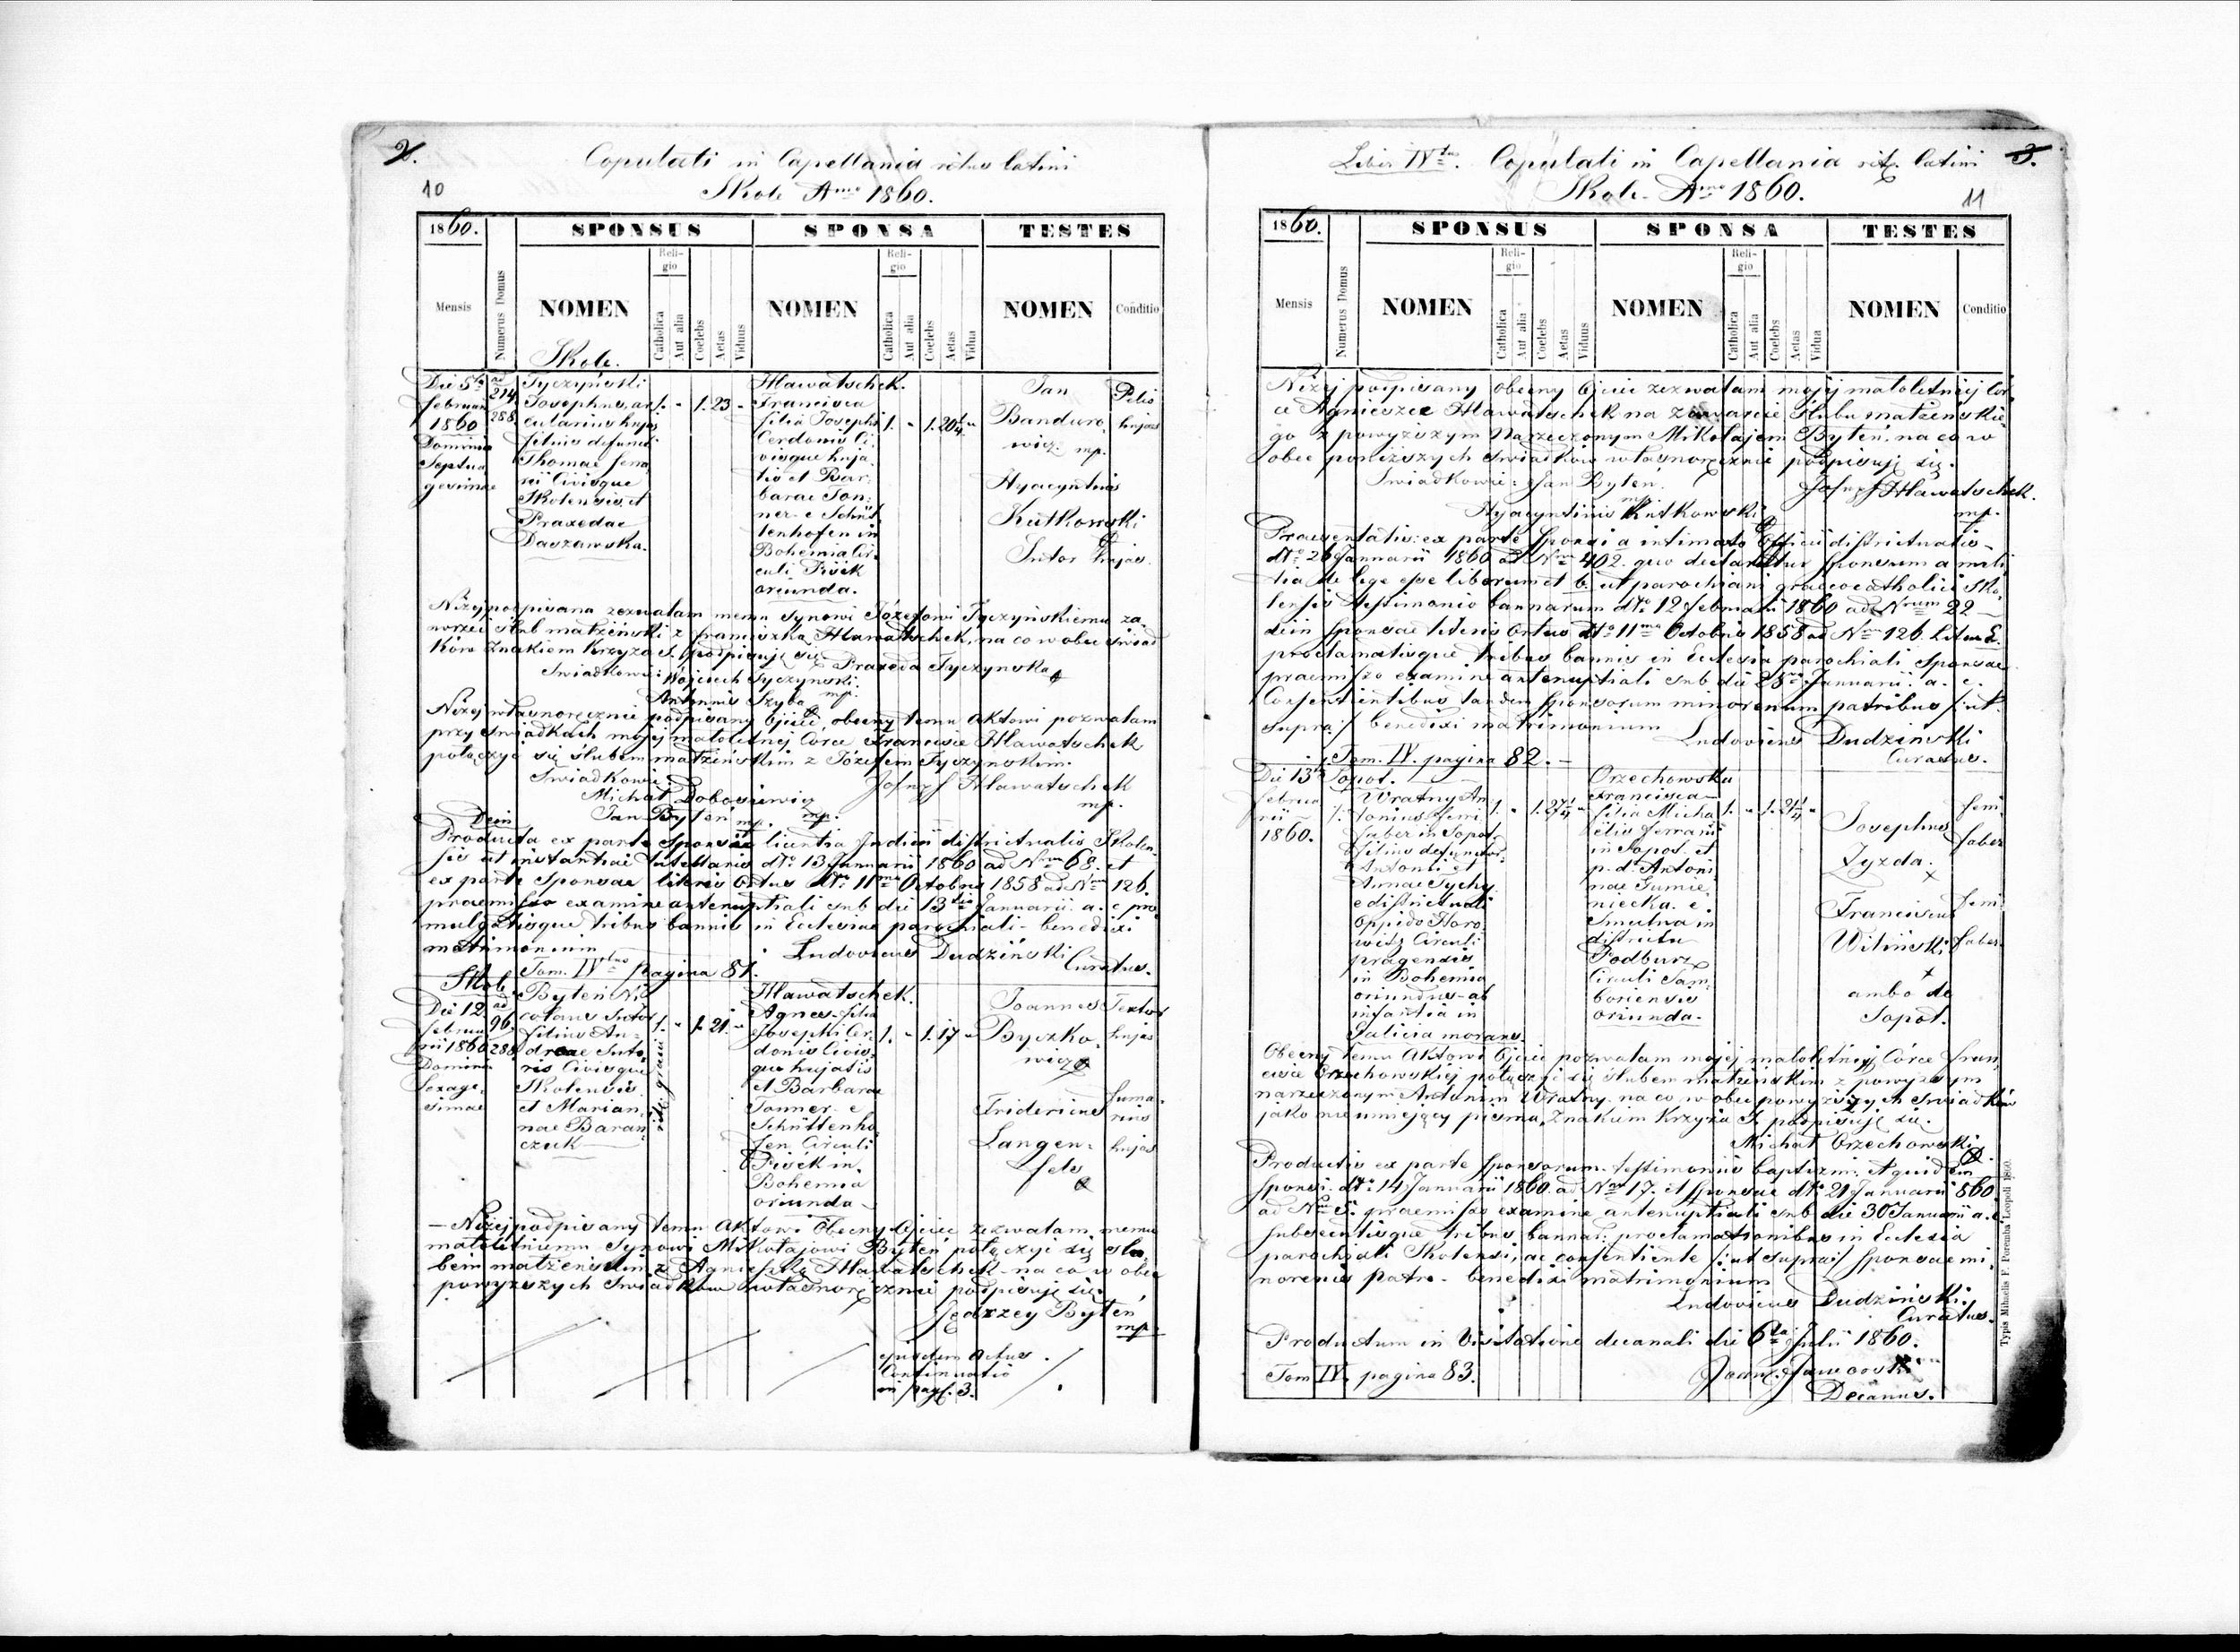 2.
Copulati in Capellania ritus latini
10
Skole Anno 1860.
1860.
SPONSUS
SPONSA
TESTES
Mensis
Numerus Domus
NOMEN
Religio
Catholica
Aut alia
Coelebs
Aetas
Viduus
NOMEN
Religio
Catholica
Aut alia
Coelebs
Aetas
Vidua
NOMEN
Conditio
Skole.
Die 5ta
februarii
1860
Dominica
Septua
gesimae
ad
214
288
Tyczyński
Josephus, ar
cularius hujas
filius defuncti
Thomae
rii Civisque
Skolensis et
Praxedae
Daszawska.
1. - 1. 23 -
Hlawatschek.
Francisca
filia Josephi
Cerdonis Ci
visque huja
tis et Bar
barae Ton
ner e Schüt
tenhofen in
Bohemia Cir
culi Pisek
oriunda.
1. - 1. 20¼ -
Jan
Banduro
wicz mp.
Hyacynthus
Kutkowski
Sutor hujas.
Pelio
hujas
Niżej podpisana zezwalam memu synowi Józefowi Tyczyńskiemu za
wrzeć ślub małżeński z franciszką Hlawatschek, na co w obec świad
ków znakiem krzyża S. podpisuję się Praxeda Tyczyńska
Swiadkowie: Wojciech Tyczyński mp.
Antonius Szyba
Niżej własnoręcznie podpisany Ojciec obecny temu aktowi pozwalam
przy świadkach mojej małoletniej Córce Francisce Hlawatschek
połączyć się ślubem małżeńskim z Józefem Tyczyńskim.
Swiadkowie: Josef Hlawatschek
mp.
Michał Dobosiewicz mp.
Jan Byteń mp.
Dein
Producta ex parte Sponsi licentia Judicii districtualis Skolen
sis ut instantiae tutellaris dto 13 Januarii 1860 ad Nrum 68. et
ex parte Sponsae literis Ortus dto 11ma Octobris 1858 ad Num 126.
praemisso examine antenuptiali sub die 13tia Januarii a. c. pro
mulgatisque tribus bannis in Ecclesiae parochiali - benedixi
matrimonium Ludovicus Dudziński
Curatus.
Tom. IVtus pagina 81.
Skole
Die 12
februa
rii 1860
Dominica
Sexage
simae
ad
96
288
Byteń Ni
colaus Sutor
filius An
dreae Suto
ris Civisque
Skolensis
et Marian
nae Baran
czuk
1. - 1. 21. -
Hlawatschek.
Agnes filia
Josephi Cer
donis Civis
que hujatis
et Barbarae
Tonner e
Schüttenho
fen Circuli
Pisek in
Bohemia
oriunda -
1. - 1. 17 -
Joannes
Byczko
wicz
Textor
hujas
Fridericus
Langen
fels
hujas
- Niżej podpisany temu Aktowi Obecny Ojciec zezwalam memu
małoletniemu Synowi Mikołajowi Byteń połączyć się ślu
bem małżeńskim z Agnieszką Hlawatschek - na co w obec
powyższych Swiadków własnoręcznie podpisuję się.
Jędrzey Byteń
mp.
ejusdem actus
Continuatio
in pag. 3.
Liber IVtus. Copulati in Capellania rit. latini 3.
Skole. Anno 1860. 11
1860.
SPONSUS
SPONSA
TESTES
Mensis
Numerus Domus
NOMEN
Religio
Catholica
Aut alia
Coelebs
Aetas
Viduus
NOMEN
Religio
Catholica
Aut alia
Coelebs
Aetas
Vidua
NOMEN
Conditio
Niżej podpisany obecny Ojciec zezwalam mojej małoletniej Cór
ce Agnieszce Hlawatschek na zawarcie Slubu małżeńskie
go z powyższym Narzeczonym Mikołajem Byteń. na co w
obec poniższych świadków własnoręcznie podpisuję się.
Swiadkowie: Jan Byteń mp. Josef Hlawatschek.
mp.
Hyacynthus Kutkowski
Praesentatis: ex parte Sponsi a intimato Officii districtualis
dto 26 Januarii 1860 ad Num 402. quo declaratur Sponsum a mili
tia de lege esse liberum et b. ut parochiani graeco catholici Sko
lensis testimonio bannorum dto 12 februarii 1860 ad Nrum 22
dein Sponsae literis Ortus dto 11ma Octobris 1858 ad Num 126
proclamatisque tribus bannis in Ecclesia parochiali Sponsae
praemisso examine antenuptiali sub die 28va Januarii. a. c.
Consentientibus tandem Sponsorum minorenum patribus /: ut
supra :/ benedixi matrimonium
Ludovicus Dudziński
Curatus.
Tom. IV. pagina 82.
Die 13tia
februa
rii
1860.
Sopot.
Wratny An
tonius ferri
faber in Sopot.
filius defunctor.
Antonii et
Annae Tychy
e districtuali
oppido Horo
witz Circuli
pragensis
in Bohemia
oriundus - ab
infantia in
Galicia morans.
1. - 1. 27¼ -
Orzechowska
Francisca
filia Micha
elis ferrarii
in Sopot. et
p. d. Antoni
nae Gumie
niecka. e
Smulna in
districtu
Podburz
Circuli Sam
boriensis
oriunda.
1. - 1. 21¼ -
Josephus
Zyzda.
+
Franciscus
Wiliński
+
ambo de
Sopot.
ferri
faber
ferri
faber
Obecny temu Aktowi Ojciec pozwalam mojej małoletniej Córce fran
cisce Orzechowskiej połączyć się ślubem małżeńskim z powyższym
narzeczonym Antonim Wratny. na co w obec powyższych Swiadków
jako nieumiejący pisma, Znakiem Krzyża S. podpisuję się.
Michał Orzechowski
Productis ex parte Sponsorum testimoniis baptismi. et quidem
Sponsi. dto 14 Januarii 1860. ad Num 17. et Sponsae dto 21 Januarii 860
ad Num 5. praemisso examine antenuptiali sub die 30 Januarii a. c.
subsecutisque tribus bannor. proclamationibus in Ecclesia
parochiali Skolensi, ac consentiente /: ut supra :/ Sponsae mi
norenis patre - benedixi matrimonium
Ludovicus Dudziński.
Curatus.
Productum in Visitatione decanali die 6ta Julii 1860.
Tom IV. pagina 83.
Decanus.
Typis Mihaelis F. Poremba Leopoli 1860.